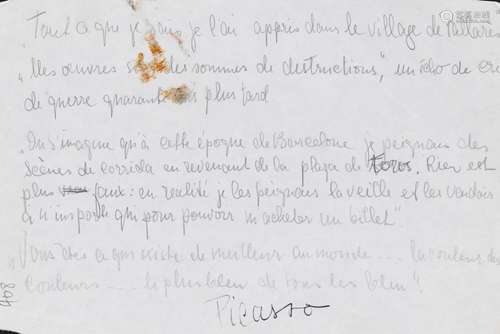 "Tout ce que je sais je l'ai appris dans le village de Pallarès
"Mes œuvres sont des sommes de destructions", un écho de cri
de guerre quarante ans plus tard
"On s'imagine qu'à cette époque de Barcelone je peignais des
scènes de corrida en revenant de la plaza de Toros. Rien est
plus faux : en réalité je les peignais la veille et les vendais
à n'importe qui pour pouvoir m'acheter un billet".
"Vous êtes ce qui existe de meilleur au monde .... la couleur des
couleurs .... le plus bleu de tous les bleu"!
Picasso
408